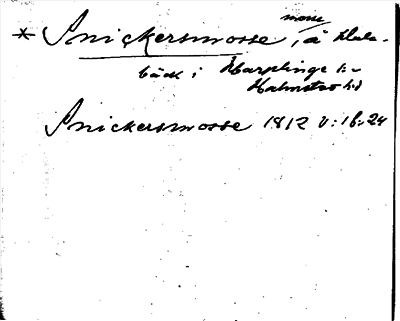 * Snickersmosse mosse, å Hule-
bäck i Harplinge k:-
Halmstad h:d
Snickersmosse 1812 V: 16: 24